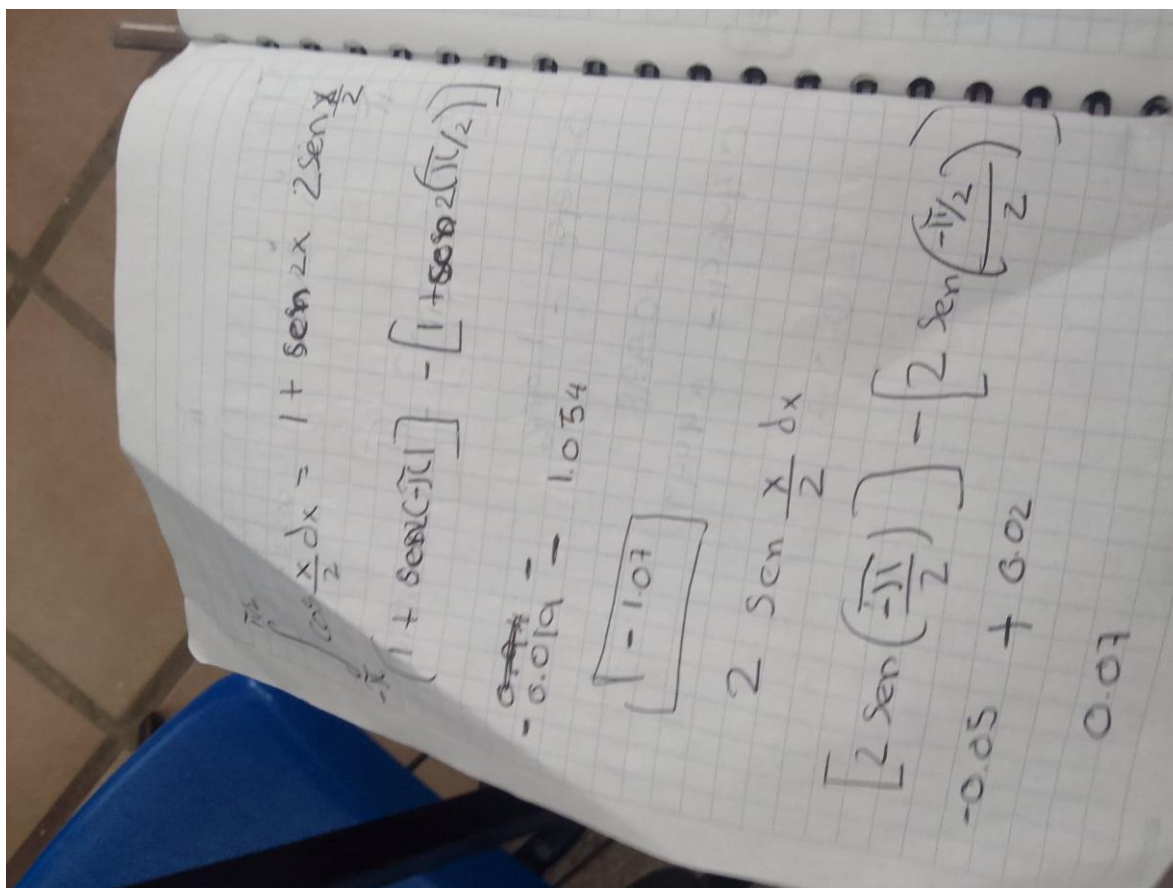 ∫_{-π}^{π/2} cos x/2 dx = 1 + sen 2x 2 sen x/2
(1 + sen2(-π)] - [1 + sen 2(π/2))]
- 0.019 - 1.054
[-1.07]
2 sen x/2 dx
[2 sen(-π/2)] - [2 sen((-π/2)/2)]
-0.05 + 0.02
0.07